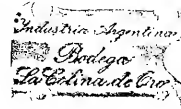 Industria Argentina
Bodega
La Colina de Oro